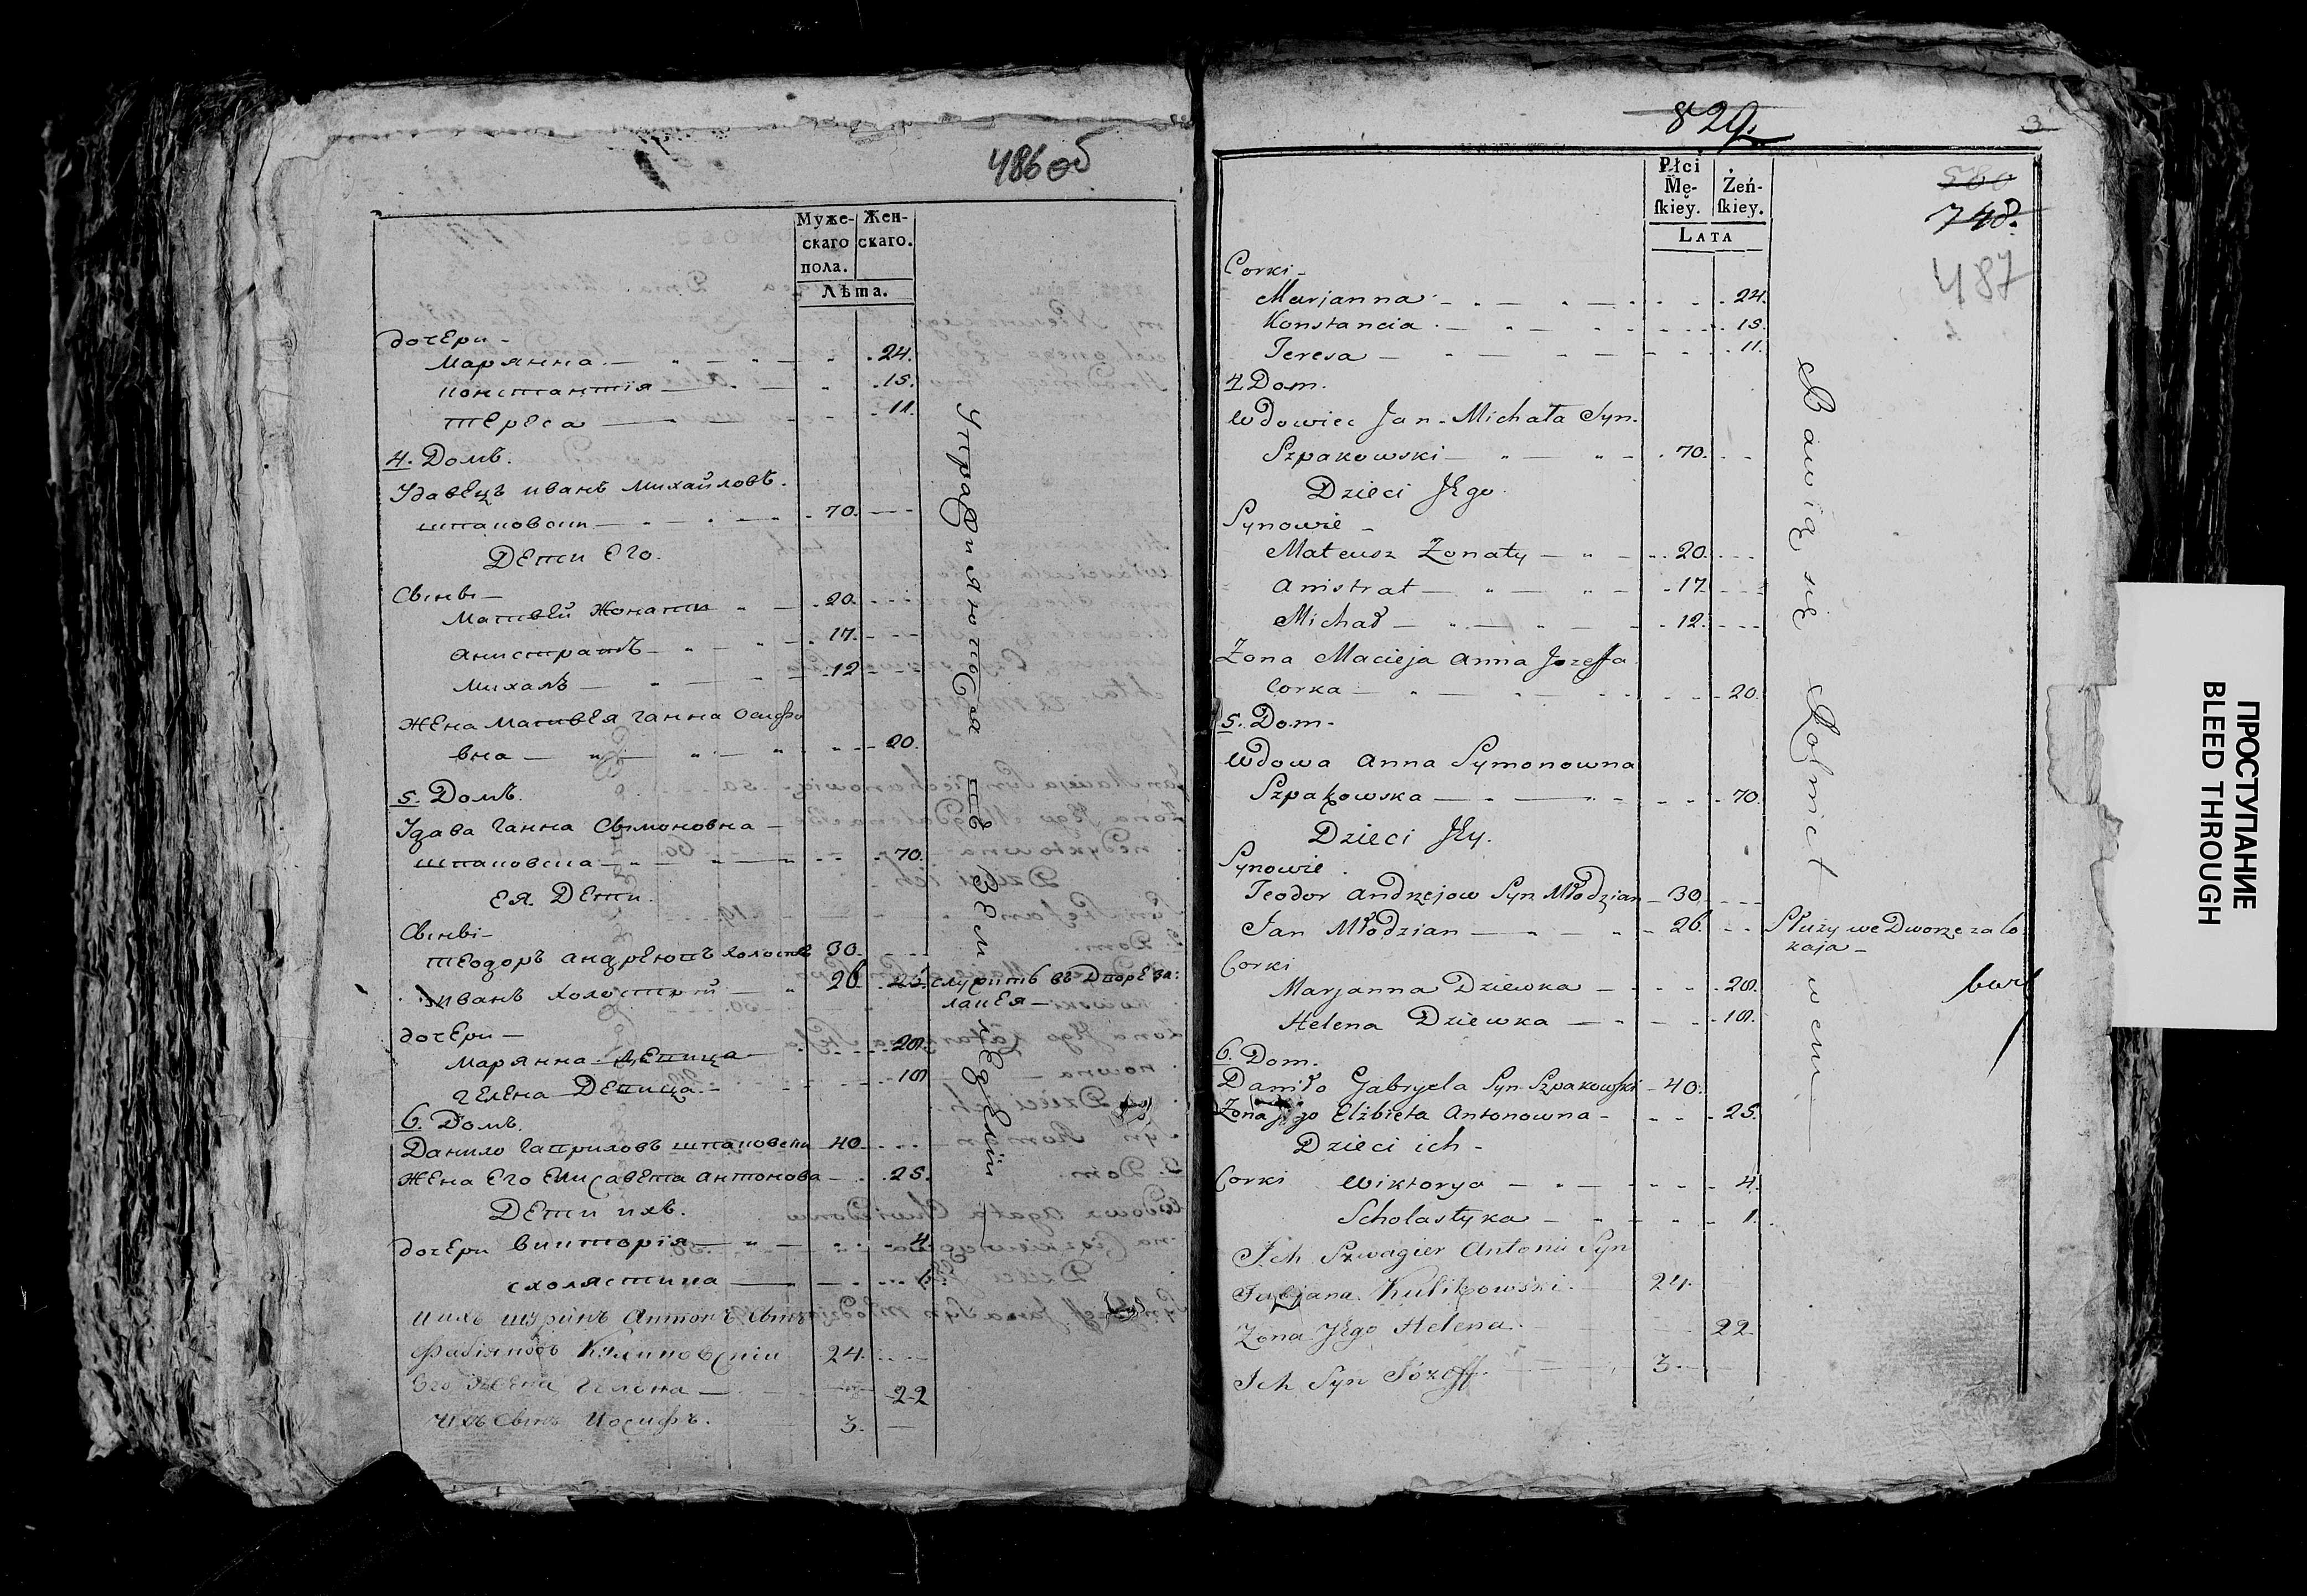 486 об
Муже-
скаго
пола.
Жен-
скаго.
Лѣта.
дочери -
Марянна - 24.
Константія - 15.
Тереса - 11.
4. Домъ.
Удавецъ иванъ Михайловъ.
шпаковски - 70.
Дети Его.
Сыны -
Матвей Жонати - 20.
Анистратъ - 17.
Михалъ - 12
Жена Матвея Ганна Осифо
вна - 20.
5. Домъ.
Удава Ганна Сымоновна -
шпаковска - 70.
Ея Дети.
Сыны -
Теодоръ андреювъ холостъ 30.
иванъ холостий - 26
служитъ въ Дворе за:
лакея -
дочери -
Марянна Девица - 20.
Гелена Девица - 18
6. Домъ.
Данило Гавриловъ шпаковски 40.
Жена Его Елисавета антонова - 25.
Дети ихъ.
дочери викторія - 4.
схолястика - 1.
ихъ шуринъ Антонъ Сынъ
Фабіяновъ Куликовскій 24.
Его Жена Гелена - 22
ихъ Сынъ Иосифъ. 3.
Управляются въ Земледелии
829.
3
Płci
Mę-
ſkiey.
Żeń-
ſkiey.
Lata
560
748.
487
Corki -
Marjanna - 24.
Konstancia - 15.
Teresa - 11.
4. Dom.
Wdowiec Jan Michała Syn.
Szpakowski - 70.
Dzieci JEgo.
Synowie -
Mateusz Zonaty - 20.
Anistrat - 17.
Michał - 12.
Zona Macieja Anna Jozeffa
Corka - 20.
5. Dom.
Wdowa Anna Symonowna
Szpakowska - 70.
Dzieci JEy.
Synowie.
Teodor Andrzejow Syn Młodzian - 30.
Jan Młodzian - 26.
Służy we Dworze za lo
kaja -
Corki
Marjanna Dziewka - 20.
Helena Dziewka - 18.
6. Dom.
Daniło Gabryela Syn Szpakowski - 40.
Zona Jego Elżbieta Antonowna - 25.
Dzieci ich -
Corki Wiktorya - 4.
Scholastyka - 1.
Ich Szwagier Antoni Syn
Fabjana Kulikowski. 24.
Zona JEgo Helena. 22.
Ich Syn Józeff. 3.
Bawią się Rolnictwem
ПРОСТУПАНИЕ
BLEED THROUGH